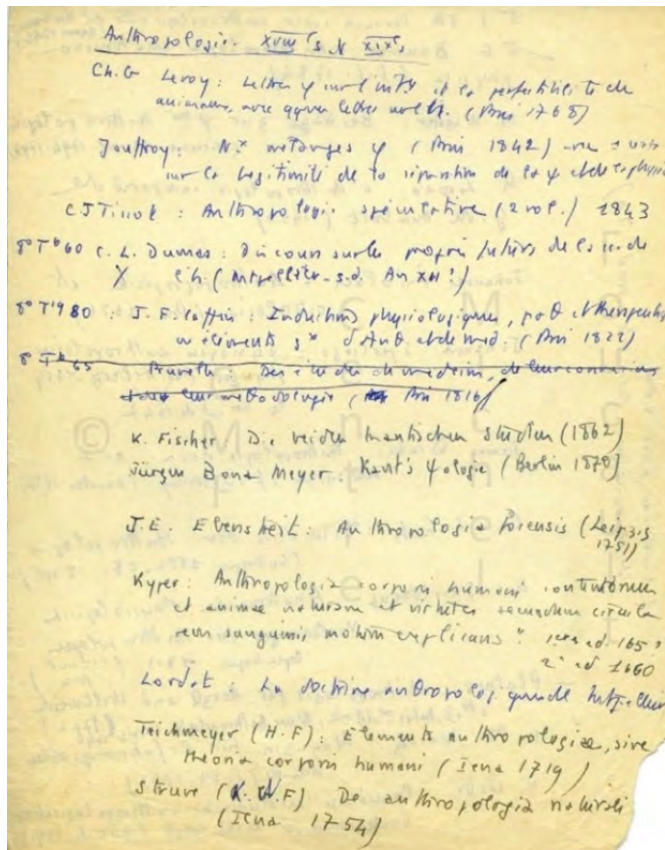 Anthropologie. XVIIIe s et XIXe s
Ch. G Leroy : Lettres φ sur l'intt et la perfectibilité des
animaux, avec qques lettres sur l'h. (Paris 1768)
Jouffroy : Nx mélanges φ (Paris 1842)
sur la légitimité de la séparation de la ψ et de la physio
C J Tissot : Anthropologie spéculative (2 vol.) 1843
8° Tb 60 C. L. Dumas : Discours sur les progrès futurs de la sc. de
l'h. (Montpellier - s.d. An XII ?)
80 : J. F. Caffin : Induction physiologiques, path et thérapeut.
éléments d'Anth. et de med. (Paris 1822)
8° 65 Prunelle : Des études du médecin, de leurs connexions
leur méthodologie (Paris 1816)
K. Fischer Die beiden kantischen Schulen (1862)
Jürgen Bona Meyer. Kant's ψologie (Berlin 1870)
J. E. Ebenstreit : Anthropologia Forensis (Leipzig
1751)
Kyper : Anthropologia corporis humani contentorum
et animae naturam et virtutes secundum circula
rem sanguinis motum explicans. 1ere ed. 165
2e ed 1660
Lordat : La doctrine anthropolog. de Montpellier
Teichmeyer (H. F) : Elementa anthropologiae, sive
theoria corporis humani (Iena 1719)
Struve De anthropologia naturali
(Iena 1754)